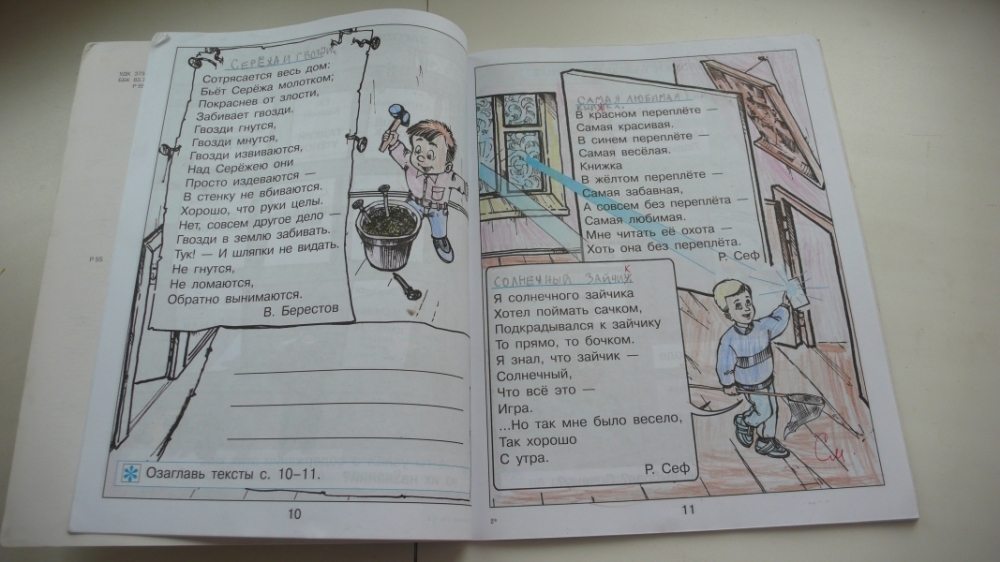 СЕРЁЖА И ГВОЗДИ.
Сотрясается весь дом:
Бьёт Серёжа молотком;
Покраснев от злости,
Забивает гвозди.
Гвозди гнутся,
Гвозди мнутся,
Гвозди извиваются,
Над Серёжею они
Просто издеваются —
В стенку не вбиваются.
Хорошо, что руки целы.
Нет, совсем другое дело —
Гвозди в землю забивать.
Тук! — И шляпки не видать.
Не гнутся,
Не ломаются,
Обратно вынимаются.
В. Берестов
Озаглавь тексты с. 10–11.
10
САМАЯ ЛЮБИМАЯ
КНИЖКА.
В красном переплёте —
Самая красивая.
В синем переплёте —
Самая весёлая.
Книжка
В жёлтом переплёте —
Самая забавная,
А совсем без переплёта —
Самая любимая.
Мне читать её охота —
Хоть она без переплёта.
Р. Сеф
СОЛНЕЧНЫЙ ЗАЙЧИК
Я солнечного зайчика
Хотел поймать сачком,
Подкрадывался к зайчику
То прямо, то бочком.
Я знал, что зайчик —
Солнечный,
Что всё это —
Игра.
...Но так мне было весело,
Так хорошо
С утра.
Р. Сеф
См
11